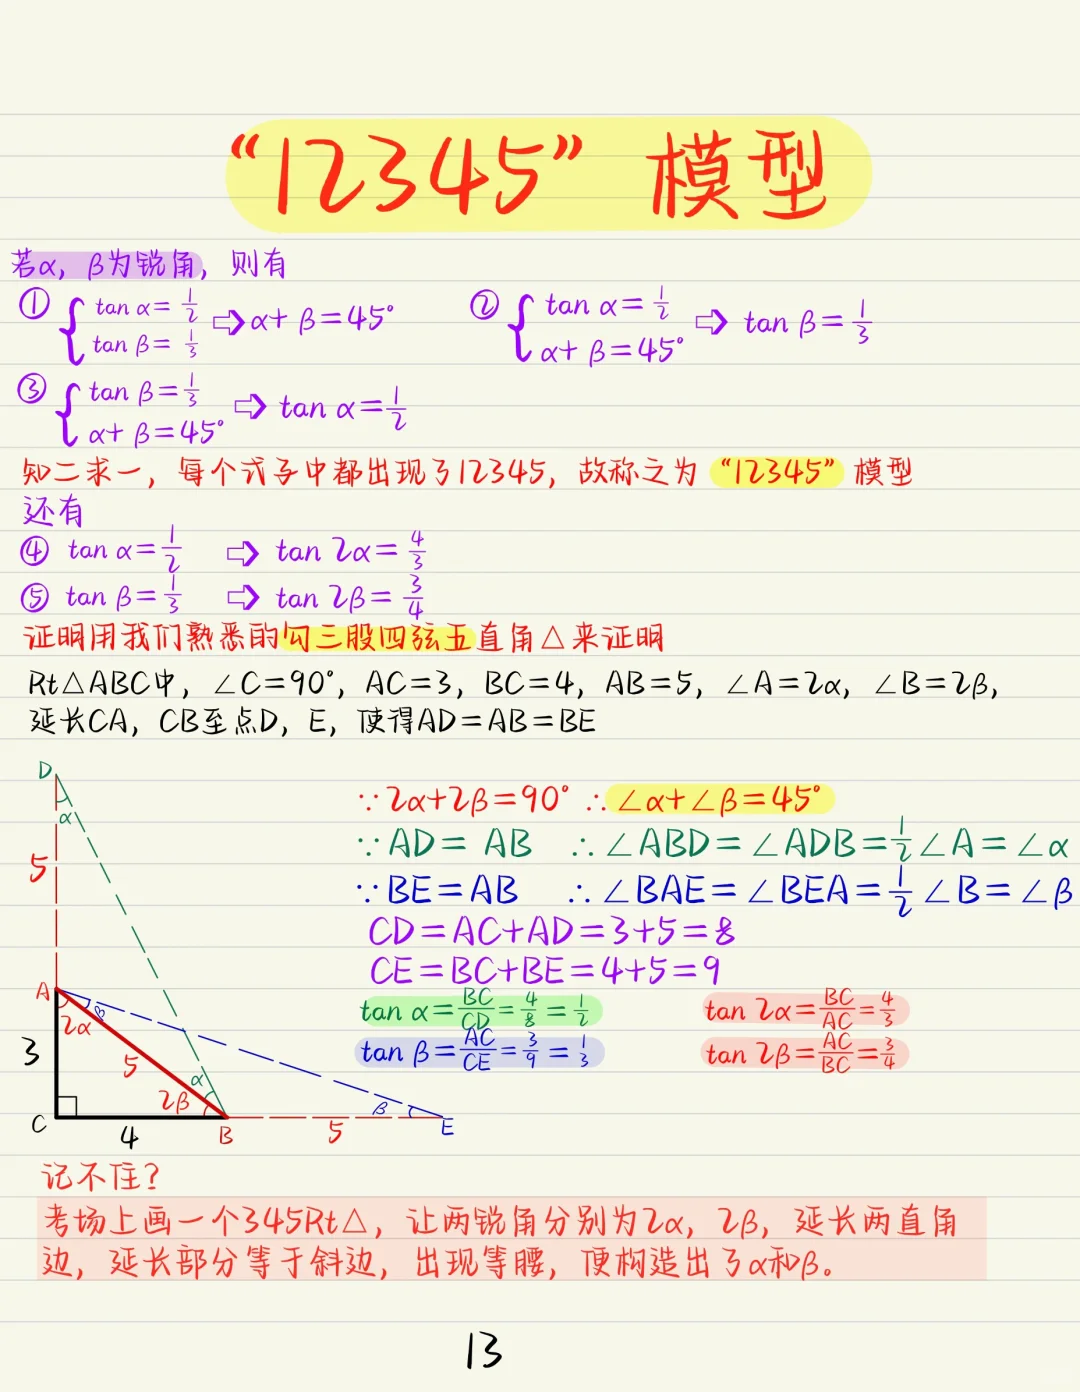 “12345”模型
若α，β为锐角，则有
① { tan α=1/2 tan β=1/3 ⇨ α+β=45°   ② { tan α=1/2 α+β=45° ⇨ tan β=1/3
③ { tan β=1/3 α+β=45° ⇨ tan α=1/2
知二求一，每个式子中都出现了12345，故称之为“12345”模型
还有
④ tan α=1/2 ⇨ tan 2α=4/3
⑤ tan β=1/3 ⇨ tan 2β=3/4
证明用我们熟悉的勾三股四弦五直角△来证明
Rt△ABC中，∠C=90°，AC=3，BC=4，AB=5，∠A=2α，∠B=2β，
延长CA，CB至点D，E，使得AD=AB=BE
∵2α+2β=90° ∴∠α+∠β=45°
∵AD=AB ∴∠ABD=∠ADB=1/2∠A=∠α
∵BE=AB ∴∠BAE=∠BEA=1/2∠B=∠β
CD=AC+AD=3+5=8
CE=BC+BE=4+5=9
tan α=BC/CD=4/8=1/2   tan 2α=BC/AC=4/3
tan β=AC/CE=3/9=1/3   tan 2β=AC/BC=3/4
D
α
5
A
β
2α
3
5
α
2β
β
C
4
B
5
E
记不住？
考场上画一个345Rt△，让两锐角分别为2α，2β，延长两直角
边，延长部分等于斜边，出现等腰，便构造出了α和β。
13